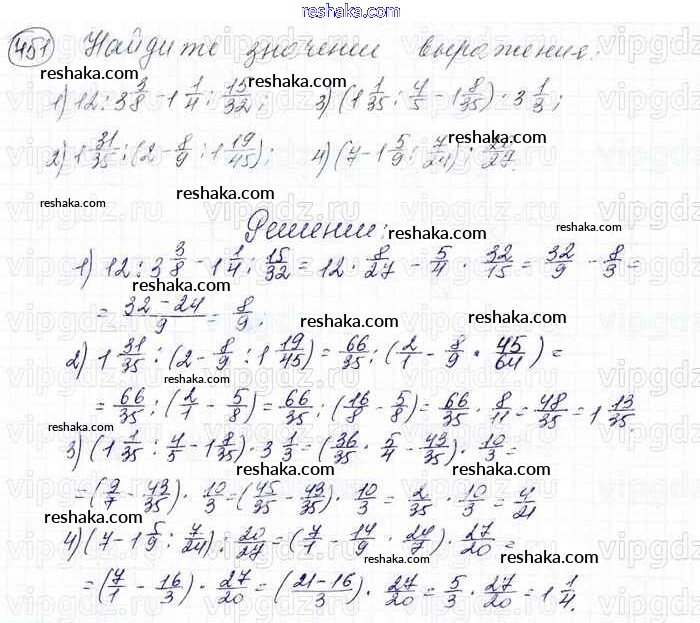 reshaka.com
451 Найдите значении выражения:
reshaka.com reshaka.com
1) 12 : 3 3/8 - 1 1/4 : 15/32; 3) (1 1/35 : 4/5 - 1 8/35) · 3 1/3;
2) 1 31/35 : (2 - 8/9 : 1 19/45); 4) (7 - 1 5/9 : 7/24) : 20/27.
reshaka.com reshaka.com
reshaka.com
Решении: reshaka.com
1) 12 : 3 3/8 - 1 1/4 : 15/32 = 12 · 8/27 - 5/4 · 32/15 = 32/9 - 8/3 =
reshaka.com
= (32 - 24)/9 = 8/9. reshaka.com
2) 1 31/35 : (2 - 8/9 : 1 19/45) = 66/35 : (2/1 - 8/9 · 45/64) =
reshaka.com reshaka.com
= 66/35 : (2/1 - 5/8) = 66/35 : (16/8 - 5/8) = 66/35 · 8/11 = 48/35 = 1 13/35.
reshaka.com
3) (1 1/35 : 4/5 - 1 8/35) · 3 1/3 = (36/35 · 5/4 - 43/35) · 10/3 =
reshaka.com reshaka.com
= (9/7 - 43/35) · 10/3 = (45/35 - 43/35) · 10/3 = 2/35 · 10/3 = 4/21
reshaka.com reshaka.com
4) (7 - 1 5/9 : 7/24) : 20/27 = (7/1 - 14/9 · 24/7) · 27/20 =
reshaka.com reshaka.com
= (7/1 - 16/3) · 27/20 = ((21-16)/3) · 27/20 = 5/3 · 27/20 = 1 1/4.
reshaka.com reshaka.com